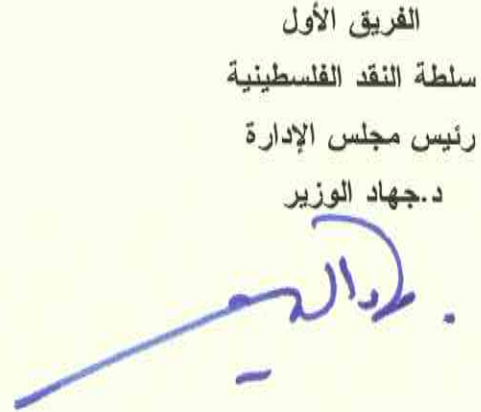 الفريق الأول
سلطة النقد الفلسطينية
رئيس مجلس الإدارة
د.جهاد الوزير